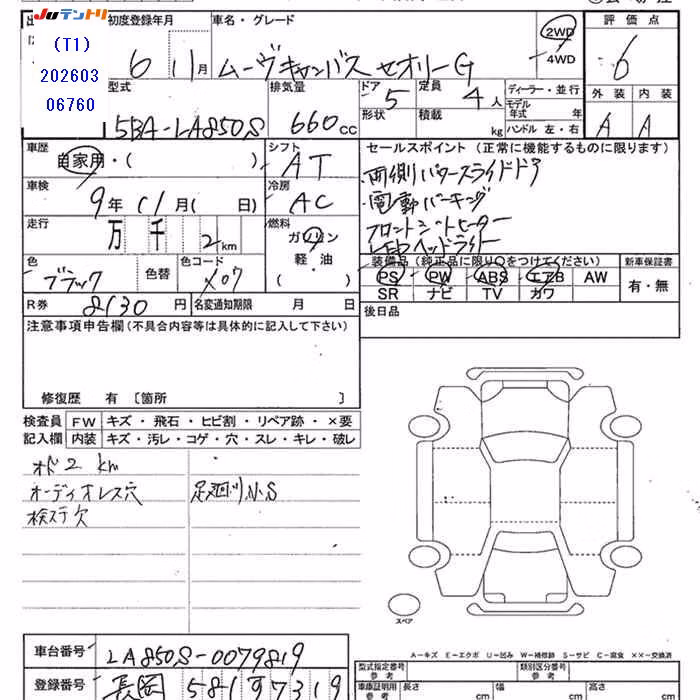 Juテントリ
(T1)
202603
06760
初度登録年月
車名・グレード
6 11月
ムーヴキャンバス セオリーG
2WD
4WD
評価点
6
型式
5BA-LA850S
排気量
660cc
ドア
5
定員
4人
形状
積載
kg
ディーラー・並行
モデル
年式 年
ハンドル 左・右
外装 内装
A A
車歴
自家用・( )
シフト
AT
セールスポイント (正常に機能するものに限ります)
・両側パワースライドドア
・電動パーキング
フロントシートヒーター
LEDヘッドライト
車検
9年 11月( 日)
冷房
AC
走行
万 千 2km
燃料
ガソリン
軽・油
( )
色
ブラック
色替
色コード
X07
装備品(純正品に限り○をつけてください)
新車保証書
PS PW ABS エアB AW
有・無
SR ナビ TV カワ
R券 8130円
名変通知期限 月 日
後日品
注意事項申告欄(不具合内容等は具体的に記入して下さい)
修復歴 有 〔箇所 〕
検査員
記入欄
FW キズ・飛石・ヒビ割・リペア跡・×要
内装 キズ・汚レ・コゲ・穴・スレ・キレ・破レ
オド2km
オーディオレス穴
足廻りN.S
検ステ欠
スペア
A−キズ E−エクボ U−凹み W−補修跡 S−サビ C−腐食 XX−交換済
車台番号
LA850S-0079819
登録番号
長岡 581 ヤ 7319
型式指定番号
参考
類別区分番号
参考
車庫証明用
参考
長さ cm
幅 cm
高さ cm